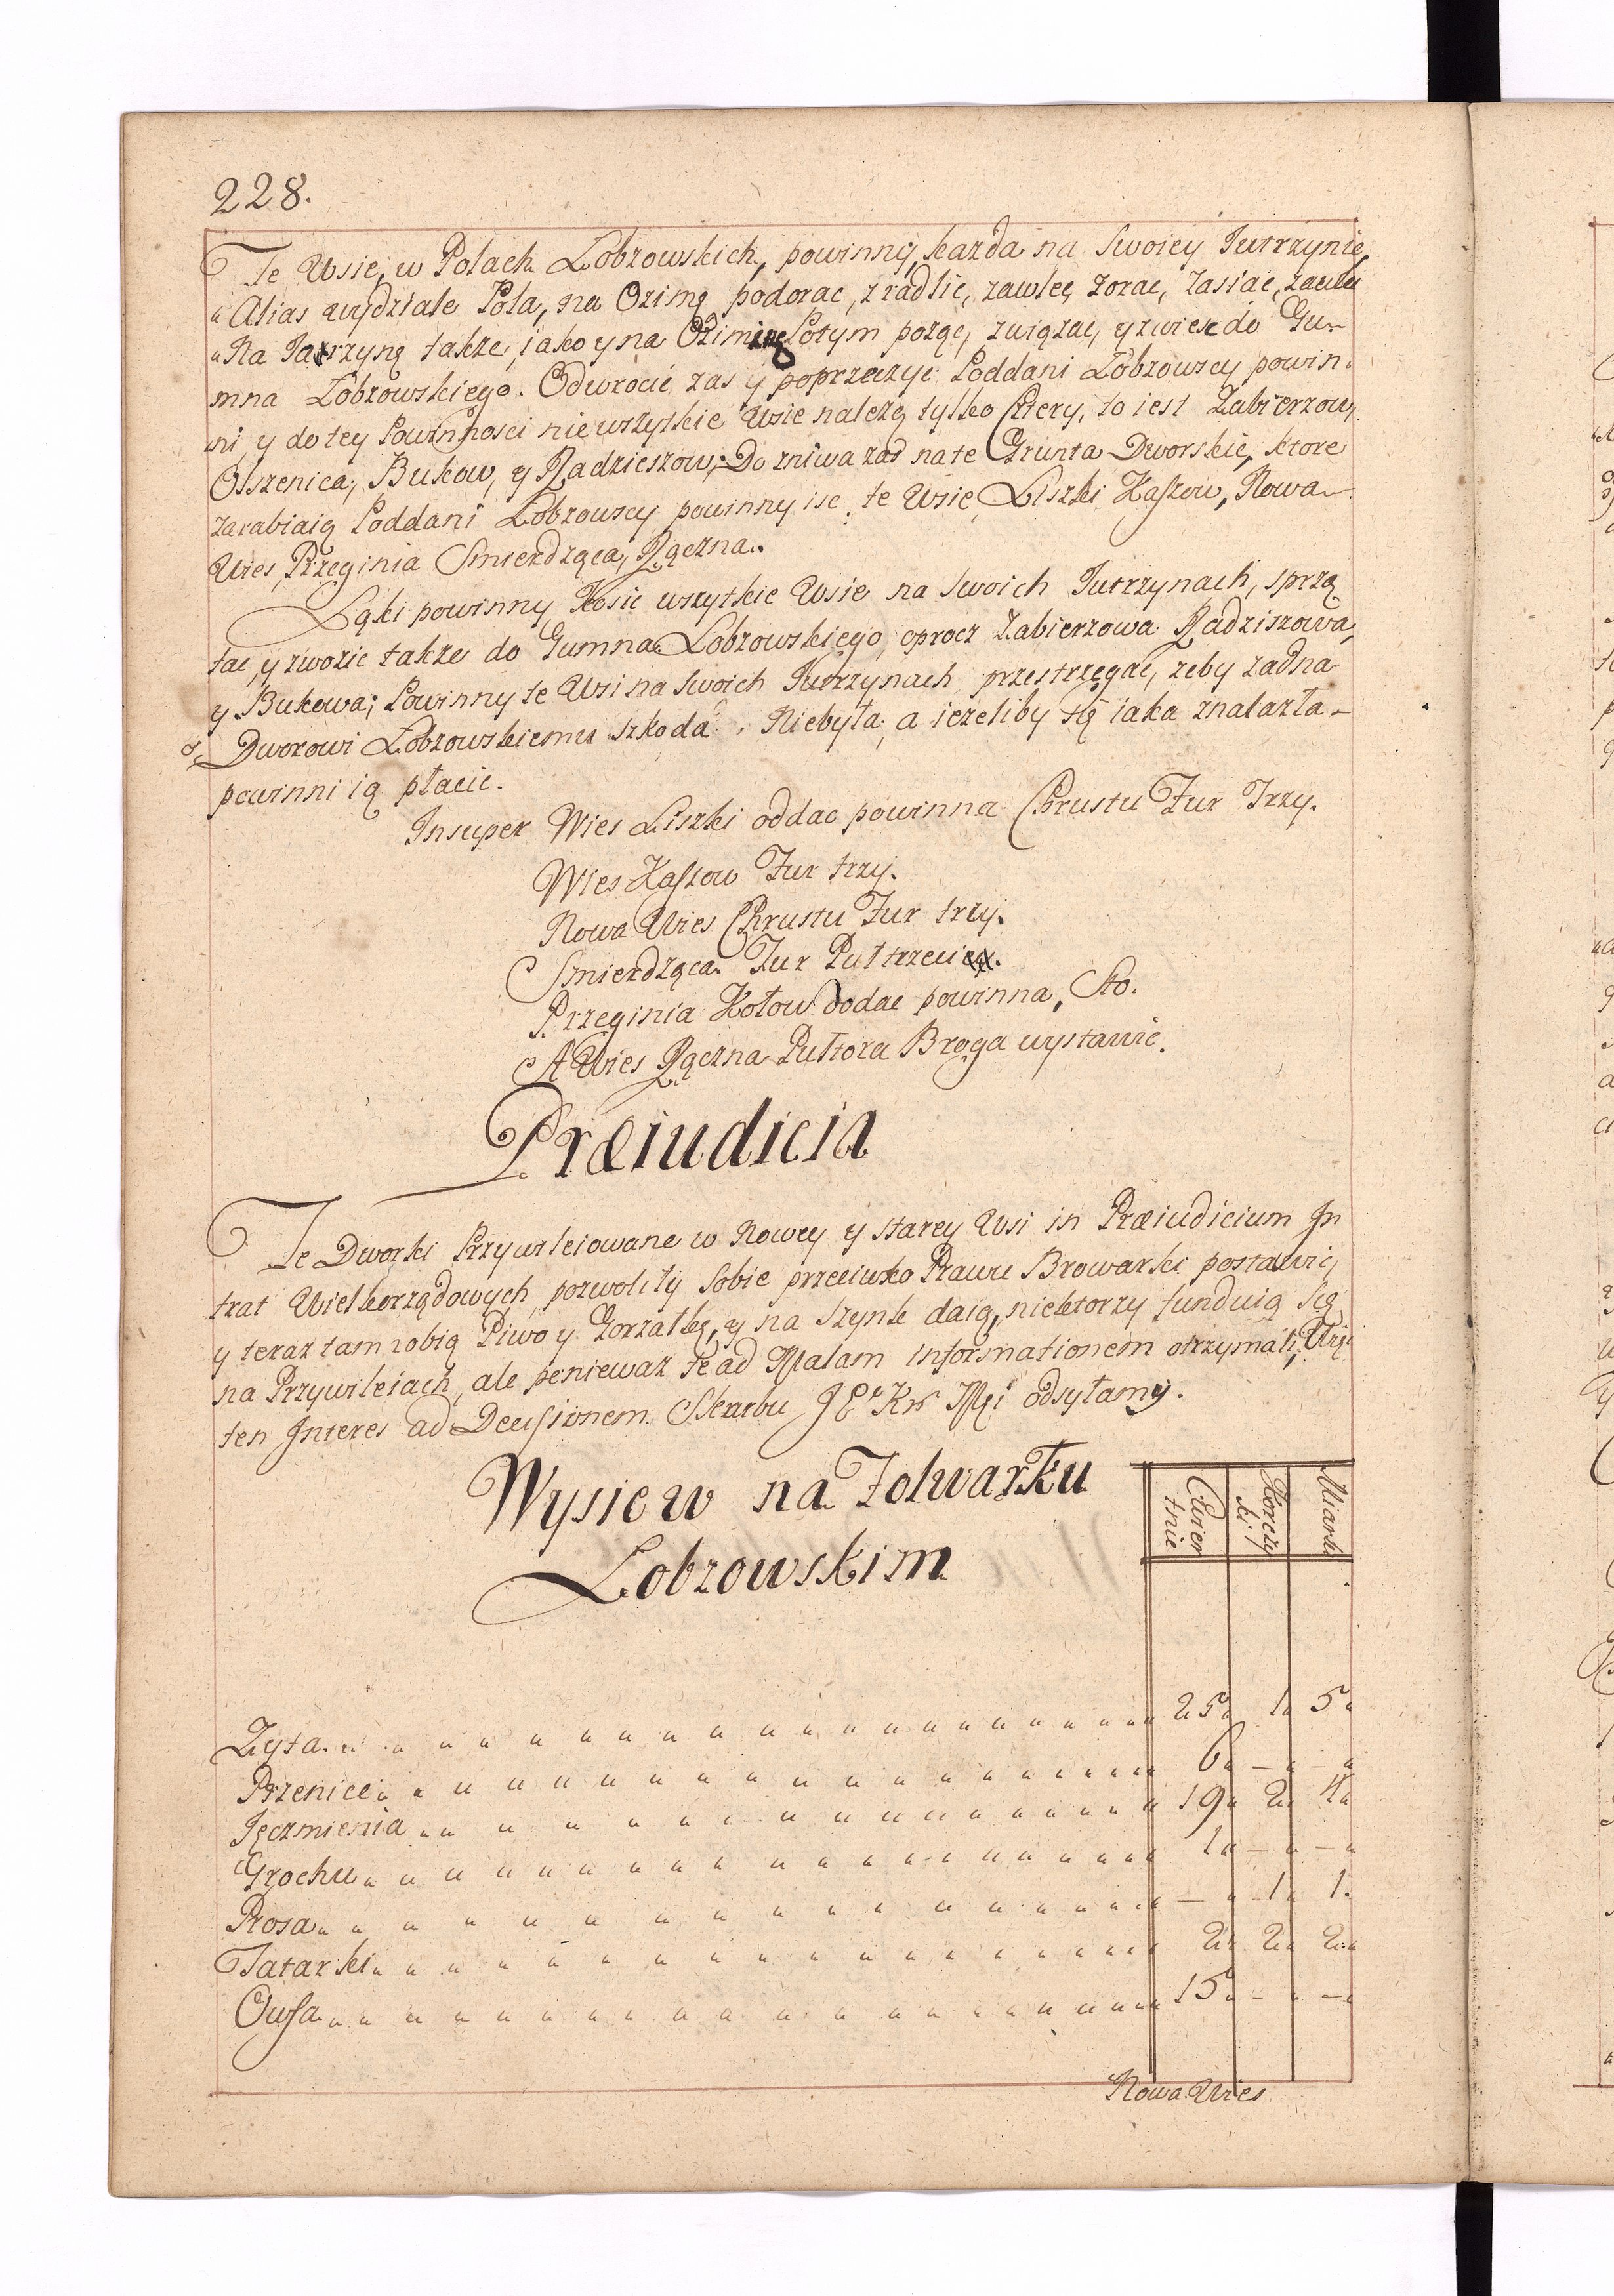 228.
Te Wsie, w Polach Lobzowskich, powinny, kazda na Swoiey Jutrzynie,
Alias wydziale Pola, na Ozimę podorac, zradlic, zawlec, zorac, Zasiac, zawlec
Na Jarzynę takze, iako y na Oziminę Potym poząc, związac, y zwiesc do Gu-
mna Łobzowskiego. Odwrocic zas y poprzeczyc Poddani Łobzowscy powin-
ni, y do tey Powinnosci nie wszytkie Wsie nalezą tylko Cztery, to iest Zabierzow,
Olszenica, Bukow, y Radzieszow; Do zniwa zas na te Grunta Dworskie, ktore
zarabiaią Poddani Lobzowscy powinny isc, te Wsie Liszki Kaszow, Nowa
Wies, Przeginia Smierdząca, Rączna.
Łąki powinny Kosic wszytkie Wsie na Swoich Jutrzynach, sprzą-
tac, y zwozic takze do Gumna Lobzowskiego, oprocz Zabierzowa Radziszowa,
y Bukowa; Powinny te Wsi na Swoich Jutrzynach przestrzegac, zeby zadna
Dworowi Lobzowskiemu szkoda Niebyła, a iezeliby się iaka znalazła
powinni ią płacic.
Insuper Wies Liszki oddac powinna Chrustu Fur Trzy.
Wies Kaszow Fur trzy.
Nowa Wies Chrustu Fur trzy.
Smierdząca Fur Puł trzeci
Przeginia Kołow dodac powinna, Sto.
A Wies Rączna Pułtora Broga wystawic.
Præiudicia
Te Dworki Przywileiowane w Nowey y starey Wsi in Præiudicium In
trat Wielkorządowych, pozwoliły Sobie przeciwko Prawu Browarki postawic,
y teraz tam robią Piwo y Gorzałkę, y na Szynk daią, niektorzy funduią Się
na Przywileiach, ale poniewaz te ad Malam informationem otrzymali, Więc
ten Interes ad Decisionem Skarbu J K Mci odsyłamy.
Wysiew na Folwarku
Lobzowskim
Cwier
tnie
Korczy
ki
Miarki
Zyta 25 1 5
Przenice 6 — —
Jęczmienia 19 2 4
Grochu 1 — —
Prosa — 1 1.
Tatarki 2 2 2
Owsa 15 — —
Nowa Wies